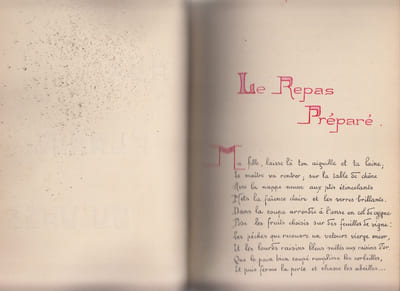 Le Repas
Préparé.
Ma fille, laisse là ton aiguille et ta laine,
Le maître va rentrer, sur la table de chêne
Avec la nappe neuve aux plis étincelants
Mets la faïence claire et les verres brillants.
Dans la coupe arrondie à l'anse en col de cygne
Pose les fruits choisis sur des feuilles de vigne:
Les pêches que recouvre un velours vierge encor,
Et les lourds raisins bleus mêlés aux raisins d'or.
Que le pain bien coupé remplisse les corbeilles,
Et puis ferme la porte et chasse les abeilles...